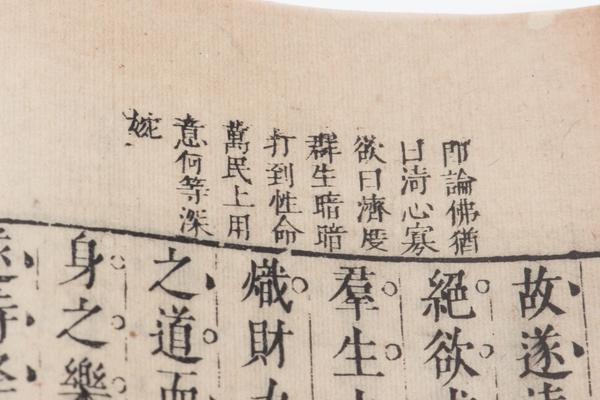 即論佛猶
曰淸心寡
欲曰濟度
群生暗暗
打到性命
萬民上用
意何等深
婉
故遂
絕欲
羣生
熾財
之道而
身之樂